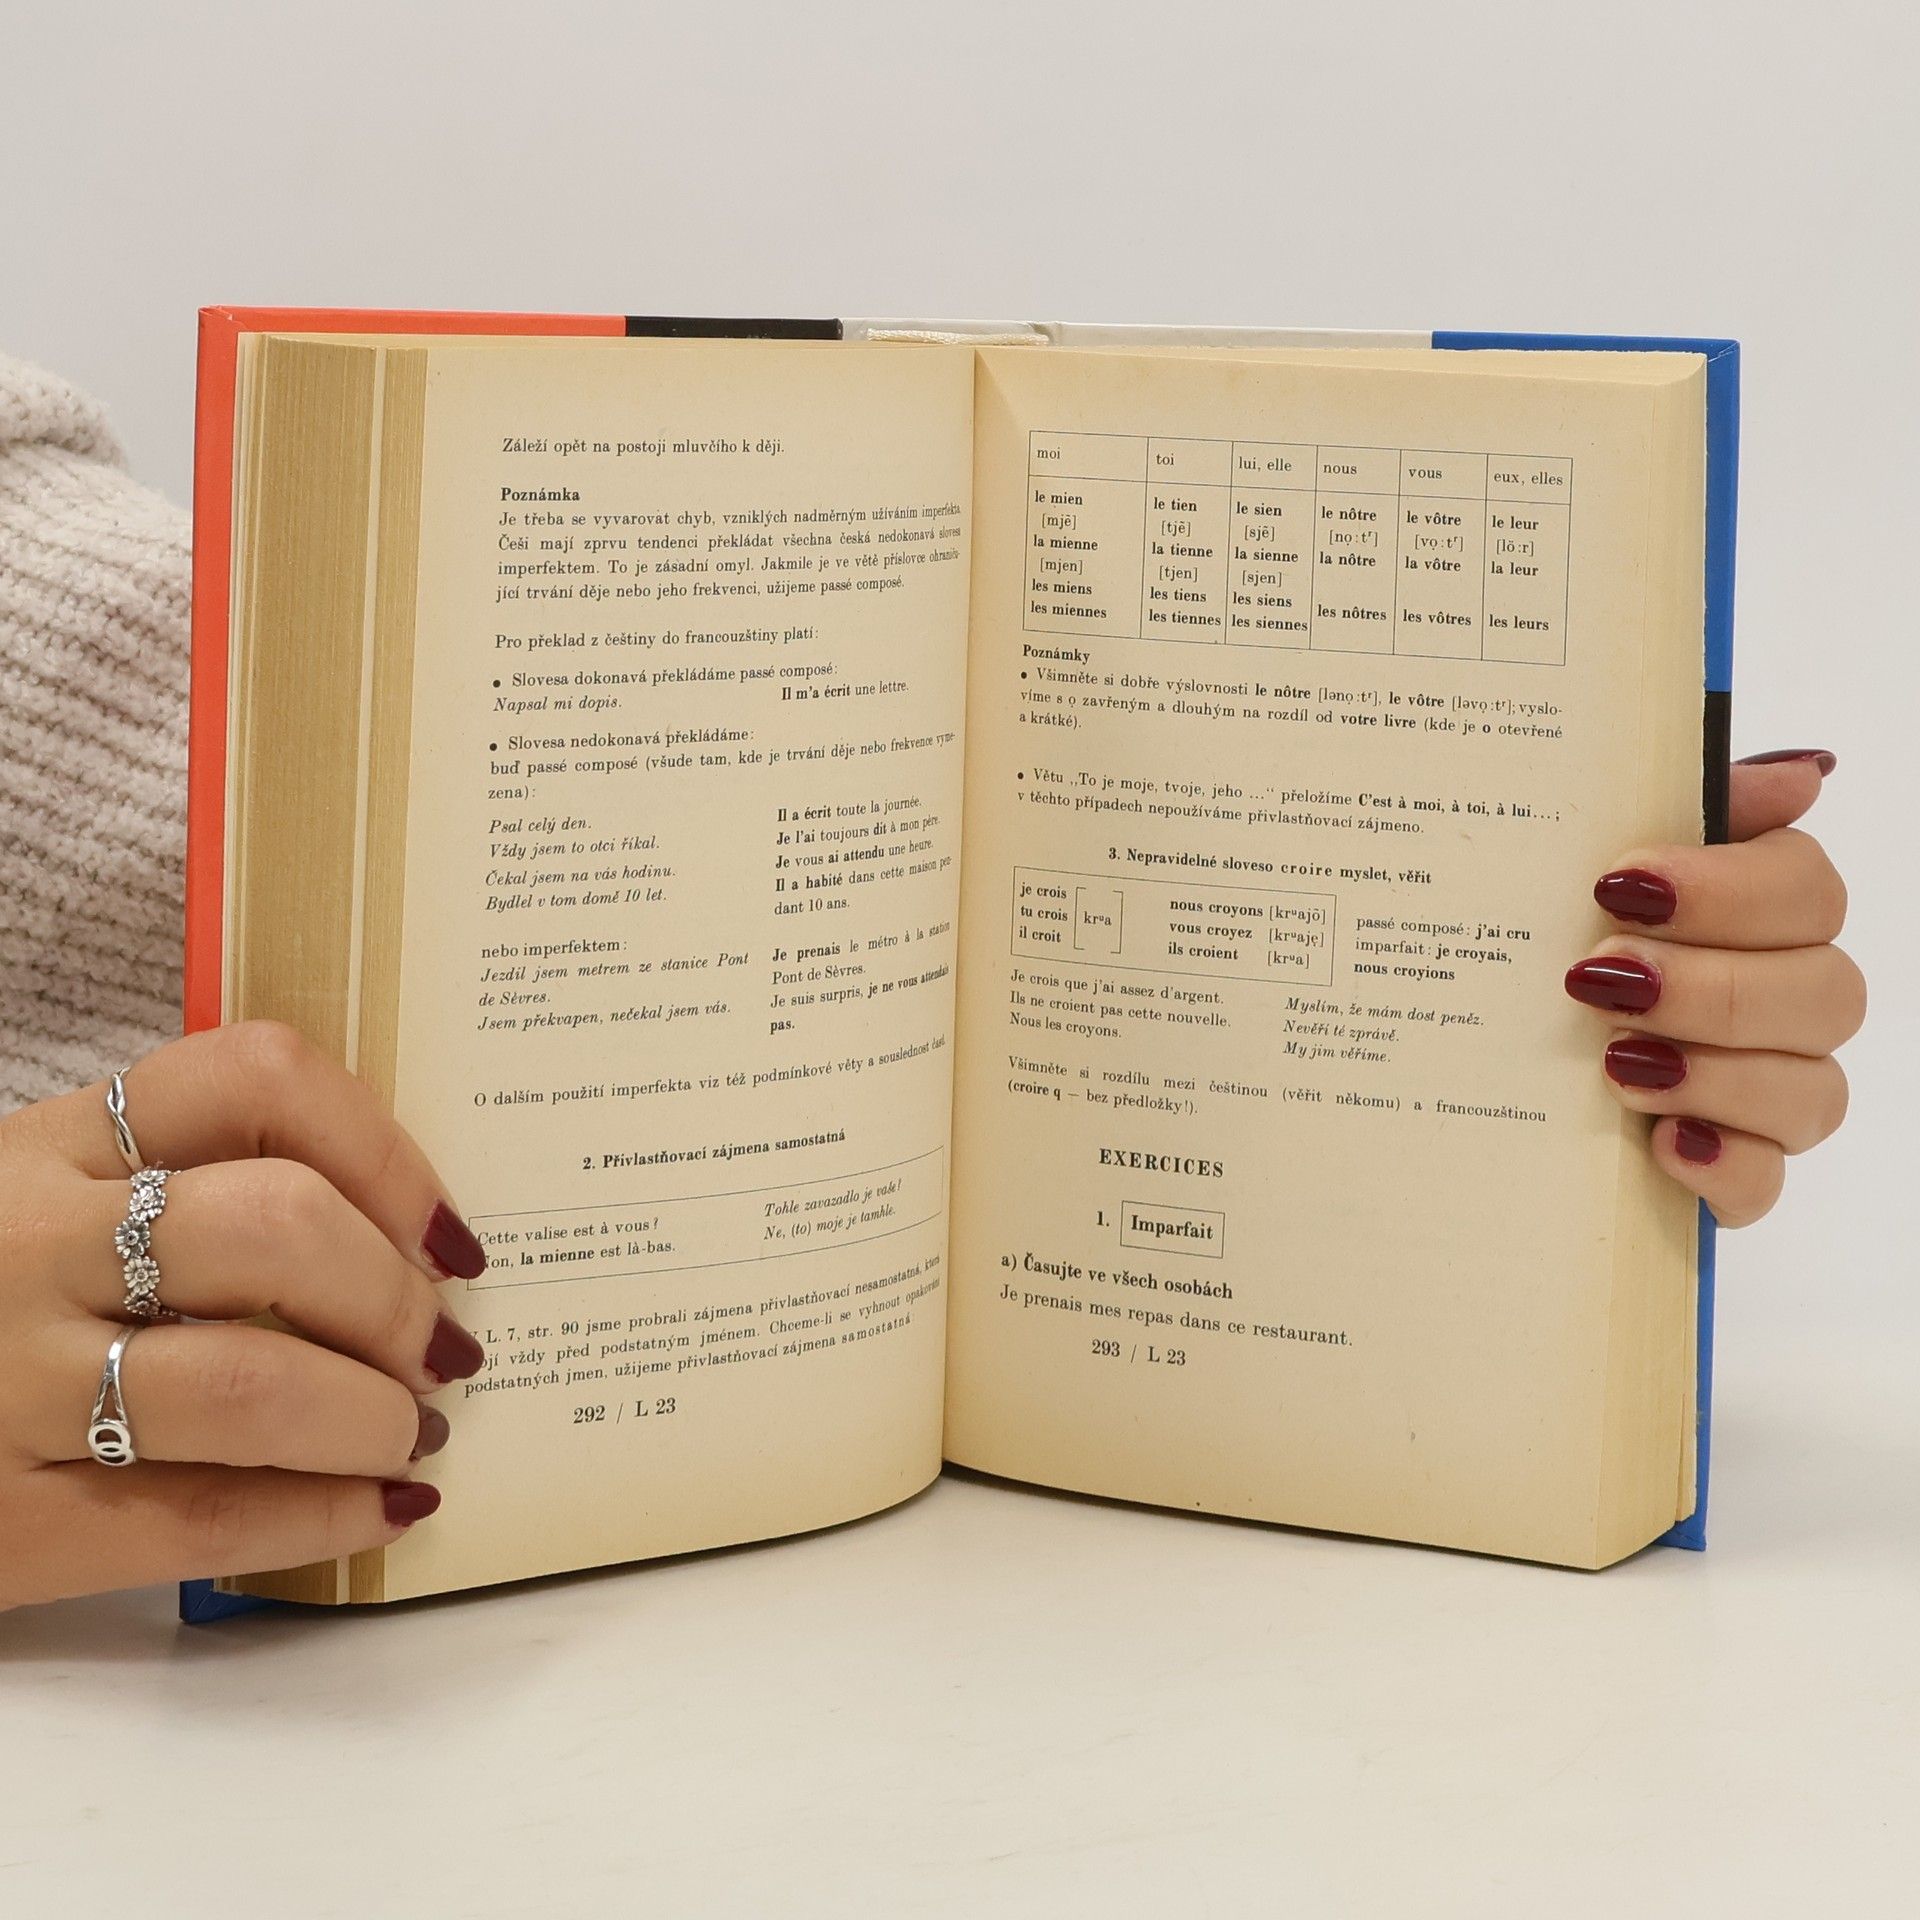 Záleží opět na postoji mluvčího k ději.
Poznámka
Je třeba se vyvarovat chyb, vzniklých nadměrným užíváním imperfekta.
Češi mají zprvu tendenci překládat všechna česká nedokonavá slovesa
imperfektem. To je zásadní omyl. Jakmile je ve větě příslovce ohraniču-
jící trvání děje nebo jeho frekvenci, užijeme passé composé.
Pro překlad z češtiny do francouzštiny platí:
• Slovesa dokonavá překládáme passé composé:
Napsal mi dopis. Il m'a écrit une lettre.
• Slovesa nedokonavá překládáme:
buď passé composé (všude tam, kde je trvání děje nebo frekvence vyme-
zena):
Psal celý den. Il a écrit toute la journée.
Vždy jsem to otci říkal. Je l'ai toujours dit à mon père.
Čekal jsem na vás hodinu. Je vous ai attendu une heure.
Bydlel v tom domě 10 let. Il a habité dans cette maison pen-
dant 10 ans.
nebo imperfektem:
Jezdil jsem metrem ze stanice Pont Je prenais le métro à la station
de Sèvres. Pont de Sèvres.
Jsem překvapen, nečekal jsem vás. Je suis surpris, je ne vous attendais
pas.
O dalším použití imperfekta viz též podmínkové věty a souslednost časů.
2. Přivlastňovací zájmena samostatná
Cette valise est à vous? Tohle zavazadlo je vaše?
Non, la mienne est là-bas. Ne, (to) moje je tamhle.
L. 7, str. 90 jsme probrali zájmena přivlastňovací nesamostatná, která
vždy před podstatným jménem. Chceme-li se vyhnout opakování
podstatných jmen, užijeme přivlastňovací zájmena samostatná:
292 / L 23
moi toi lui, elle nous vous eux, elles
le mien le tien le sien le nôtre le vôtre le leur
[mjẽ] [tjẽ] [sjẽ] [nọ:tʳ] [vọ:tʳ] [lö:r]
la mienne la tienne la sienne la nôtre la vôtre la leur
[mjen] [tjen] [sjen]
les miens les tiens les siens
les miennes les tiennes les siennes les nôtres les vôtres les leurs
Poznámky
• Všimněte si dobře výslovnosti le nôtre [lənọ:tʳ], le vôtre [ləvọ:tʳ]; vyslo-
víme s ọ zavřeným a dlouhým na rozdíl od votre livre (kde je o otevřené
a krátké).
• Větu „To je moje, tvoje, jeho ...“ přeložíme C'est à moi, à toi, à lui...;
v těchto případech nepoužíváme přivlastňovací zájmeno.
3. Nepravidelné sloveso croire myslet, věřit
je crois nous croyons [krᵘajõ]
tu crois krᵘa vous croyez [krᵘaję] passé composé: j'ai cru
il croit ils croient [krᵘa] imparfait: je croyais,
nous croyions
Je crois que j'ai assez d'argent. Myslím, že mám dost peněz.
Ils ne croient pas cette nouvelle. Nevěří té zprávě.
Nous les croyons. My jim věříme.
Všimněte si rozdílu mezi češtinou (věřit někomu) a francouzštinou
(croire q — bez předložky!).
EXERCICES
1. Imparfait
a) Časujte ve všech osobách
Je prenais mes repas dans ce restaurant.
293 / L 23